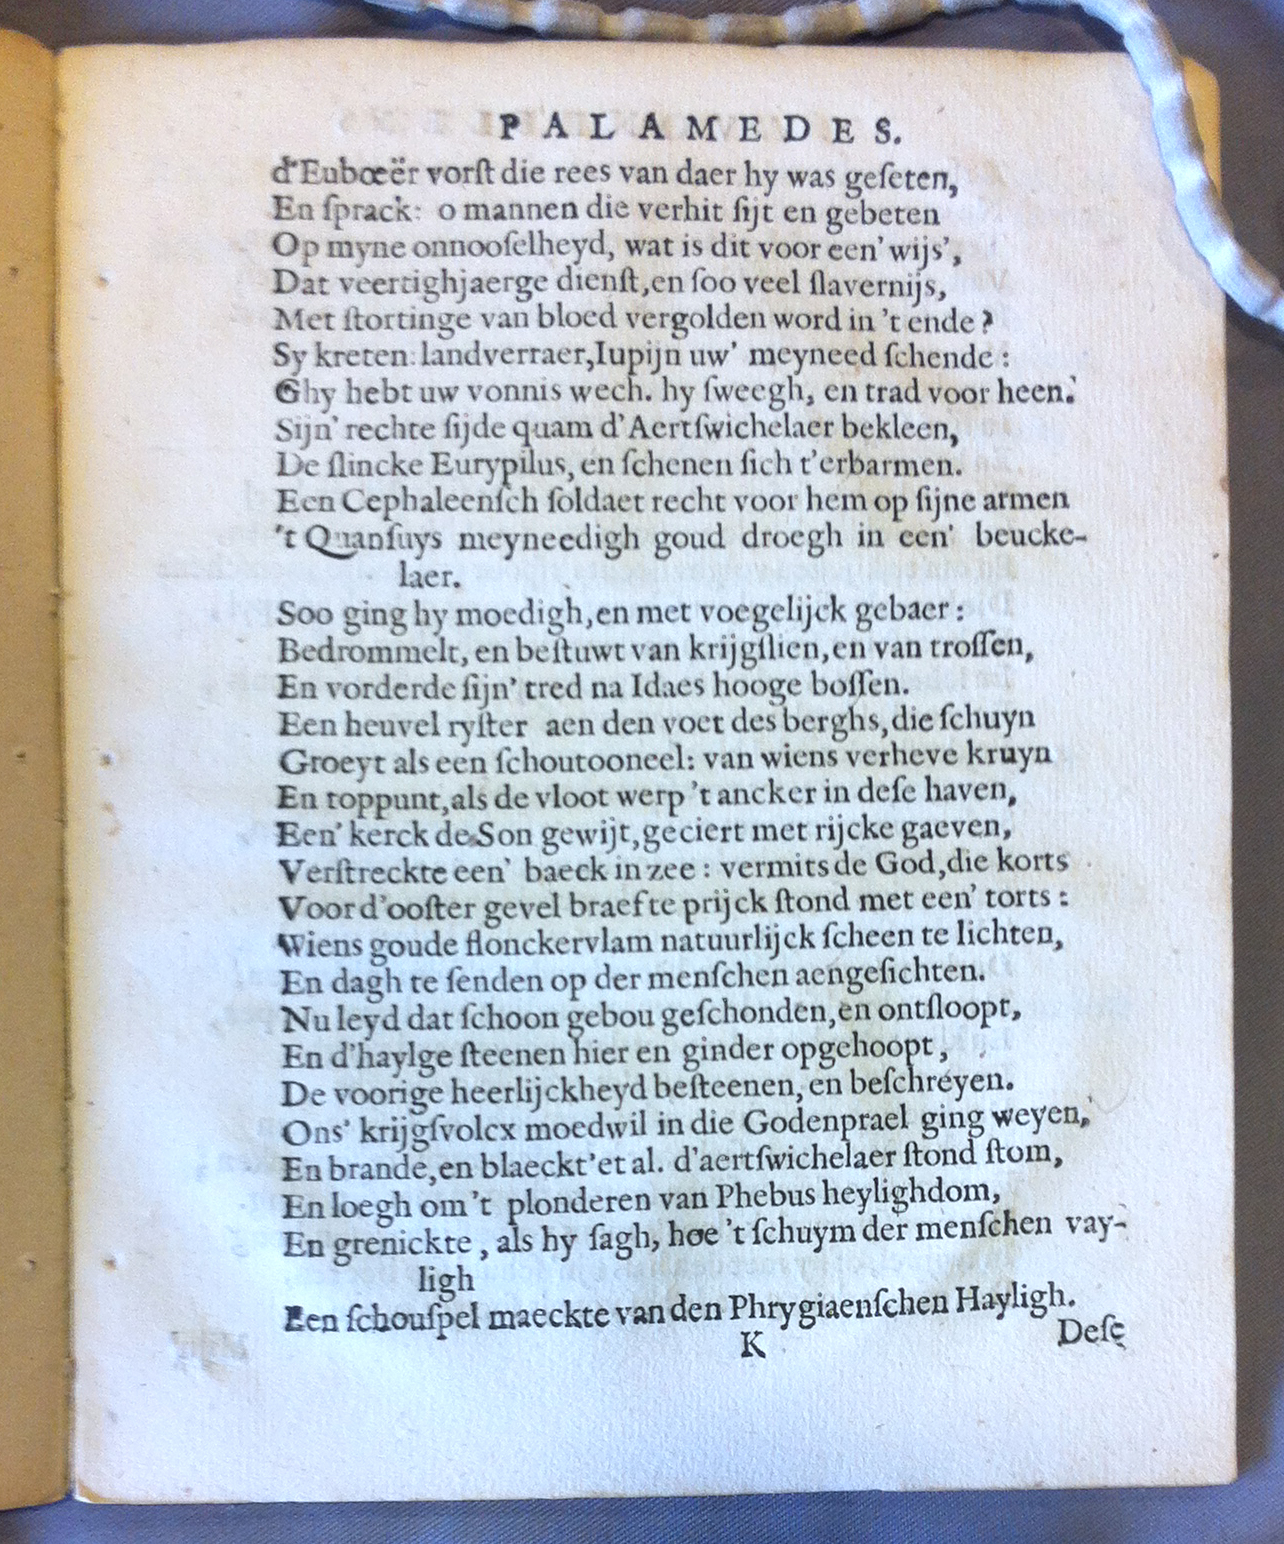 PALAMEDES.
d'Eubœër vorſt die rees van daer hy was geſeten,
En ſprack: o mannen die verhit ſijt en gebeten
Op myne onnooſelheyd, wat is dit voor een' wijs',
Dat veertighjaerge dienſt, en ſoo veel ſlavernijs,
Met ſtortinge van bloed vergolden word in 't ende?
Sy kreten: landverraer, Iupijn uw' meyneed ſchende:
Ghy hebt uw vonnis wech. hy ſweegh, en trad voor heen.
Sijn' rechte ſijde quam d'Aertſwichelaer bekleen,
De ſlincke Eurypilus, en ſchenen ſich t'erbarmen.
Een Cephaleenſch ſoldaet recht voor hem op ſijne armen
't Quanſuys meyneedigh goud droegh in een' beucke-
laer.
Soo ging hy moedigh, en met voegelijck gebaer:
Bedrommelt, en beſtuwt van krijgſlien, en van troſſen,
En vorderde ſijn' tred na Idaes hooge boſſen.
Een heuvel ryſter aen den voet des berghs, die ſchuyn
Groeyt als een ſchoutooneel: van wiens verheve kruyn
En toppunt, als de vloot werp 't ancker in deſe haven,
Een' kerck de Son gewijt, geciert met rijcke gaeven,
Verſtreckte een' baeck in zee: vermits de God, die korts
Voor d'ooſter gevel braef te prijck ſtond met een' torts:
Wiens goude flonckervlam natuurlijck ſcheen te lichten,
En dagh te ſenden op der menſchen aengeſichten.
Nu leyd dat ſchoon gebou geſchonden, en ontſloopt,
En d'haylge ſteenen hier en ginder opgehoopt,
De voorige heerlijckheyd beſteenen, en beſchreyen.
Ons' krijgſvolcx moedwil in die Godenprael ging weyen,
En brande, en blaeckt' et al. d'aertſwichelaer ſtond ſtom,
En loegh om 't plonderen van Phebus heylighdom,
En grenickte, als hy ſagh, hoe 't ſchuym der menſchen vay-
ligh
Een ſchouſpel maeckte van den Phrygiaenſchen Hayligh.
K
Deſe